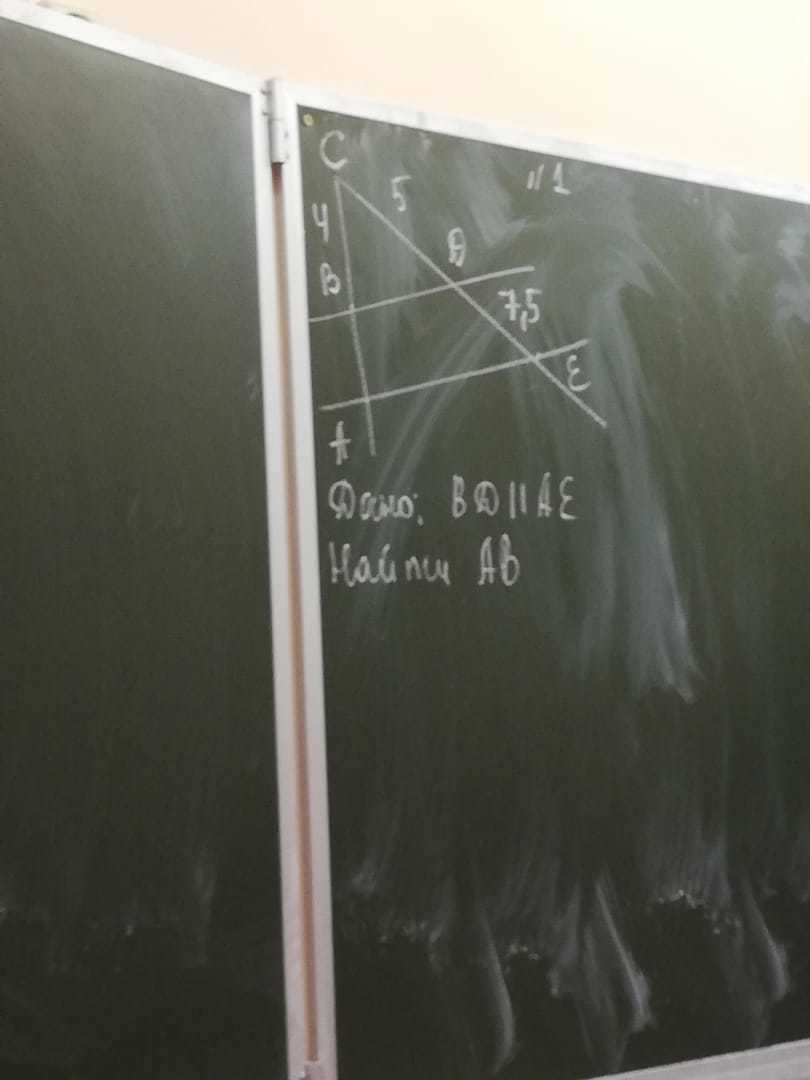 C
5
№1
4
D
B
7,5
E
A
Дано: BD || AE
Найти AB